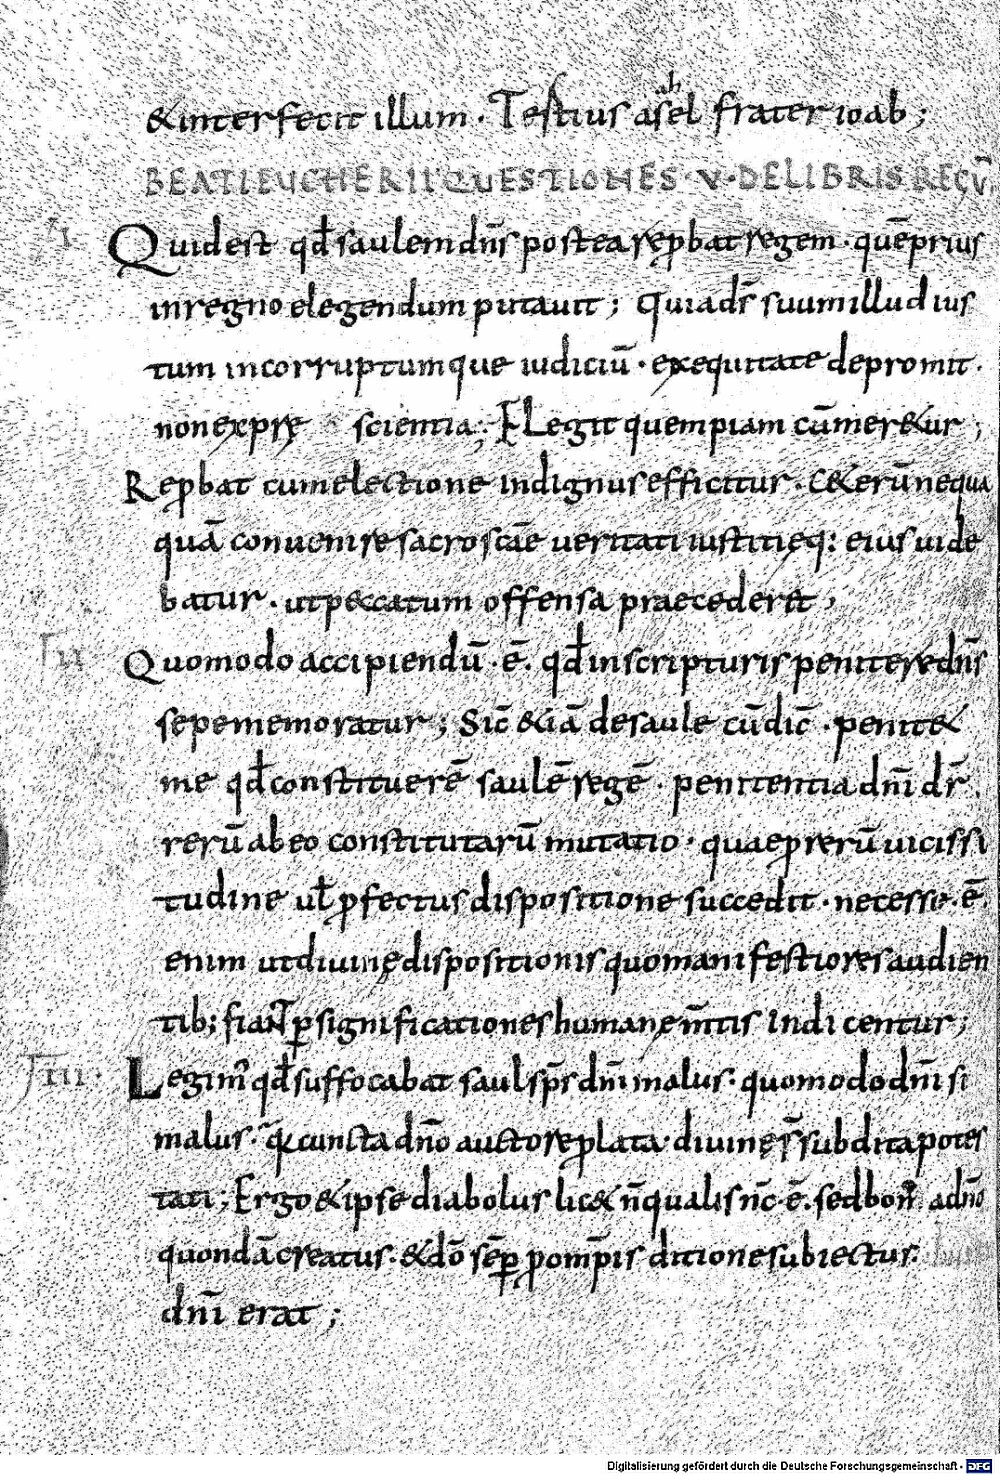 & interfecit illum · Tertius asahel frater ioab ;
BEATI EUCHERII QUESTIONES · V · DE LIBRIS REGŪ
·I· Quid est qđ saulem dn̄s postea rep̱bat regem · quē prius
in regno elegendum putauit ; Quia dr̄ suum illud ius
tum incorruptumque iudiciū · ex equitate depromit ·
non ex pr̨ę scientia ; Elegit quempiam cū mer&ur ;
Rep̱bat cum electione indignus efficitur · C&erū nequa
quā conuenire sacroscāe ueritati iustitięq: eius uide
batur · ut peccatum offensa praecederet ;
·II· Quomodo accipiendū · ē · qđ in scripturis penitere dn̄s
sepe memoratur ; Sic̄ & iā de saule cū dic̄ · penit&
me qđ constituerē saulē regē · penitentia dn̄i dr̄ ·
rerū ab eo constitutarū mutatio · quae p̱ rerū uicissi
tudine ul̄ p̱fectus dispositione succedit · necesse · ē ·
enim ut diuinę dispositionis quo manifestiores audien
tib; fiant p̱ significationes humanę m̄tis indicentur ;
·III· Legim' qđ suffocabat saul sp̄s dn̄i malus : quomodo dn̄i si
malus · cuncta dn̄o auctore p̱lata · diuinę s̄ subdita potes
tati ; Ergo & ipse diabolus lic& n̄ qualis nc̄ · ē · sed bon' a dn̄o
quondā creatus · & dō sēp̱ p̱ om̄pis ditione subiectus :
dn̄i erat ;
Digitalisierung gefördert durch die Deutsche Forschungsgemeinschaft · DFG